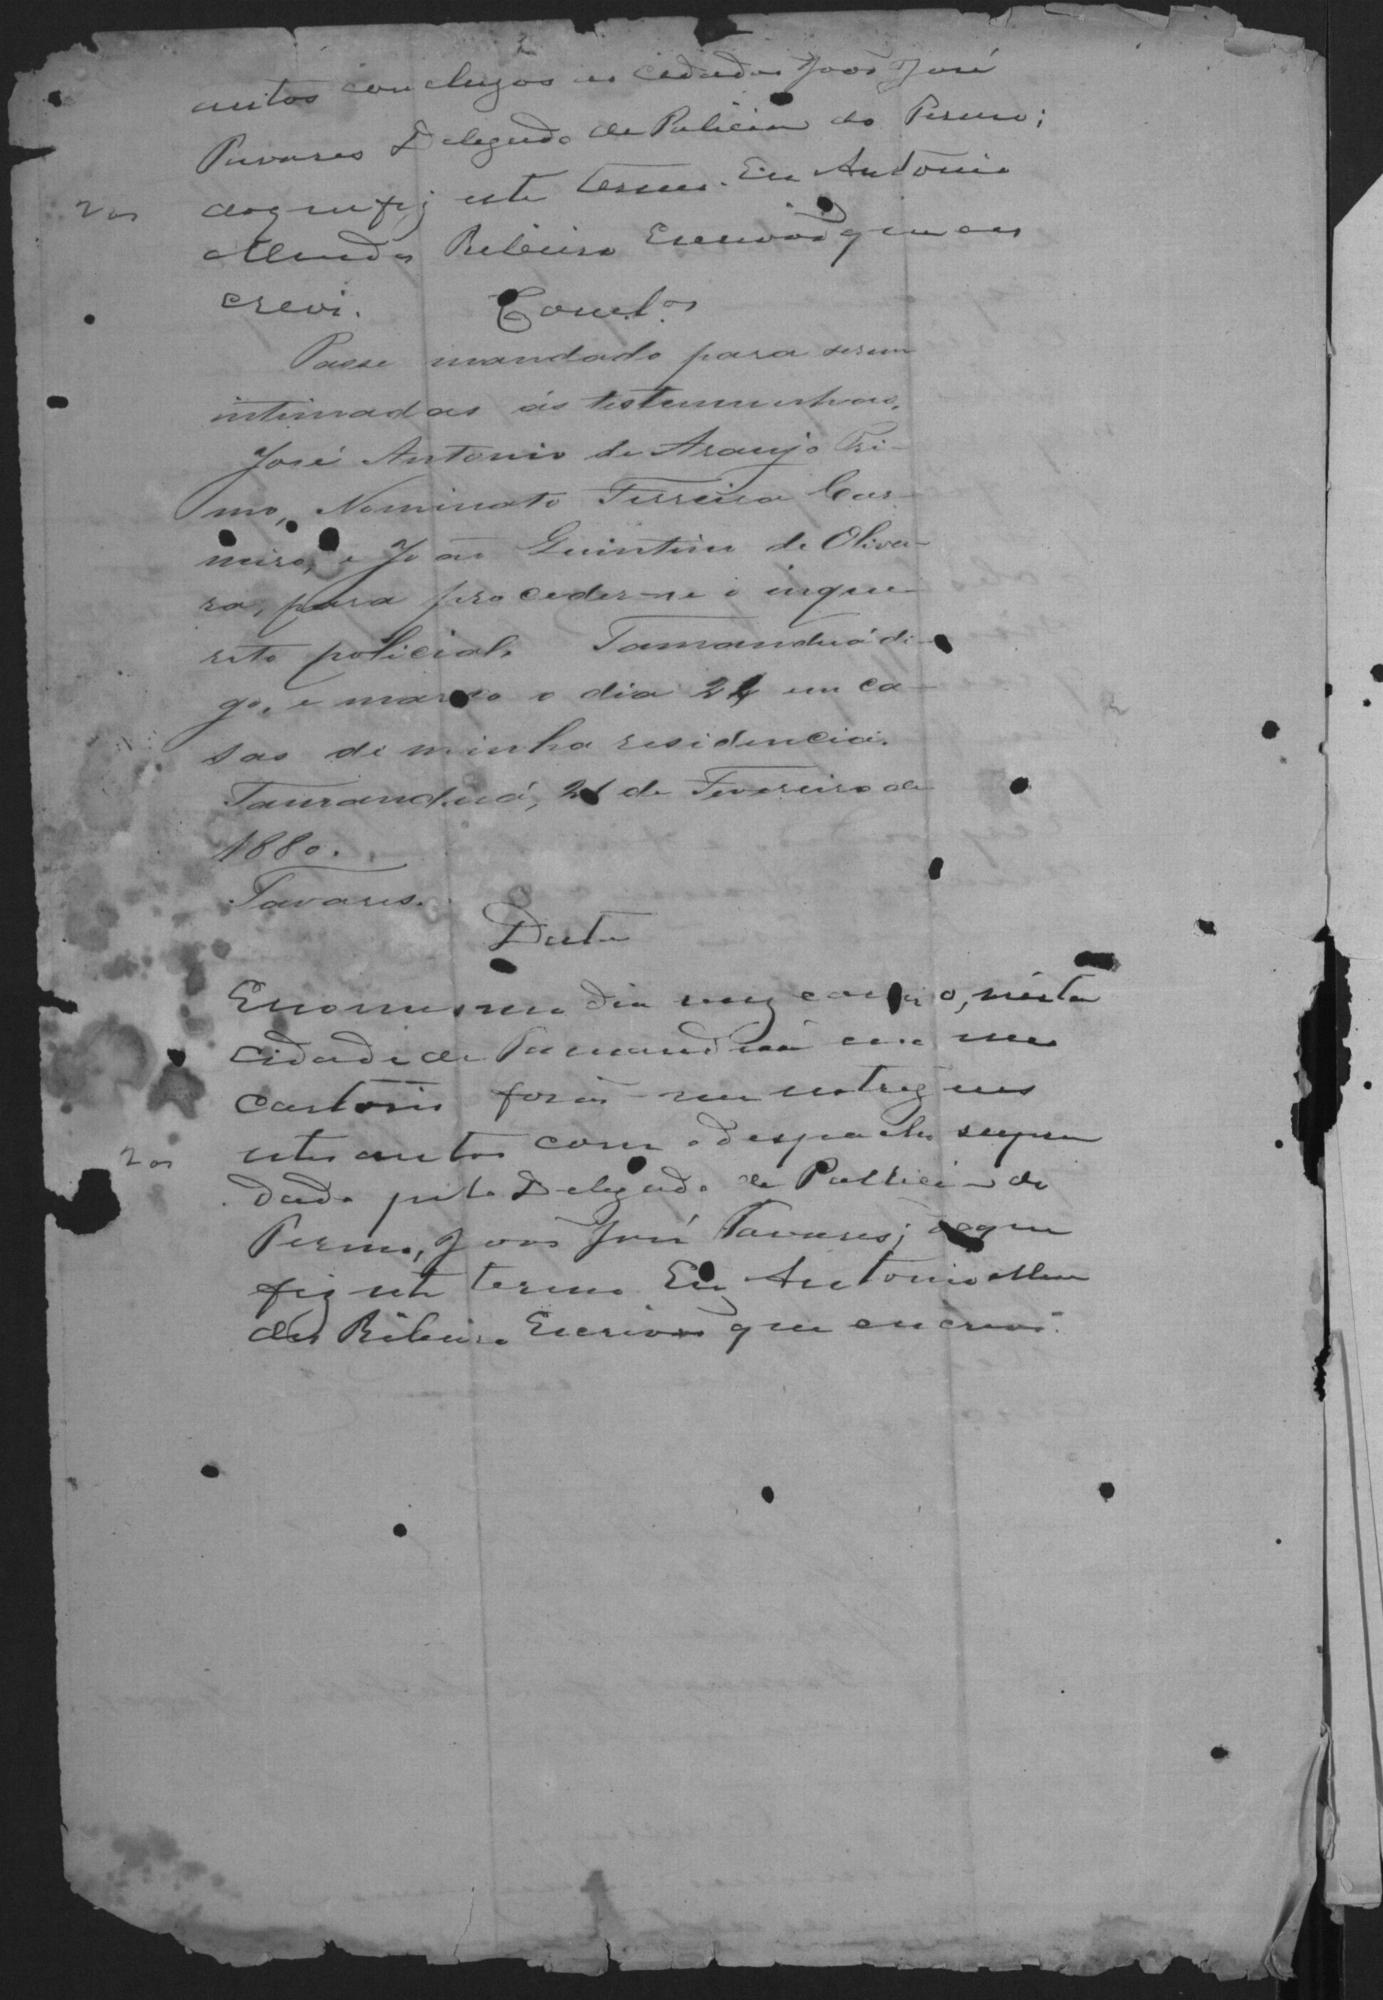 autos conclusos ao cidadão João José
Tavares Delegado de Policia do Termo;
do que fiz este termo. Eu Antonio
200
Mendes Ribeiro Escrivão que es
crevi. Concl.os
Passe mandado para serem
intimadas ás testemunhas,
José Antonio de Araujo Pri-
mo, Nominato Ferreira Car-
neiro, e João Quintino de Olivei-
ra, para proceder-se o inque-
rito policial. Tamanduá di-
go, e marco o dia 24 em ca-
sas de minha residencia.
Tamanduá, 21 de Fevereiro de
1880.
Tavares.
Data
E no mesmo dia mez e anno, nesta
cidade de Tamanduá em meu
cartorio forão me entregues
estes autos com o despacho supra
200
dado pelo Delegado de Policia do
Termo, João José Tavares; do que
fiz este termo Eu Antonio Men
des Ribeiro Escrivão que escrevi.